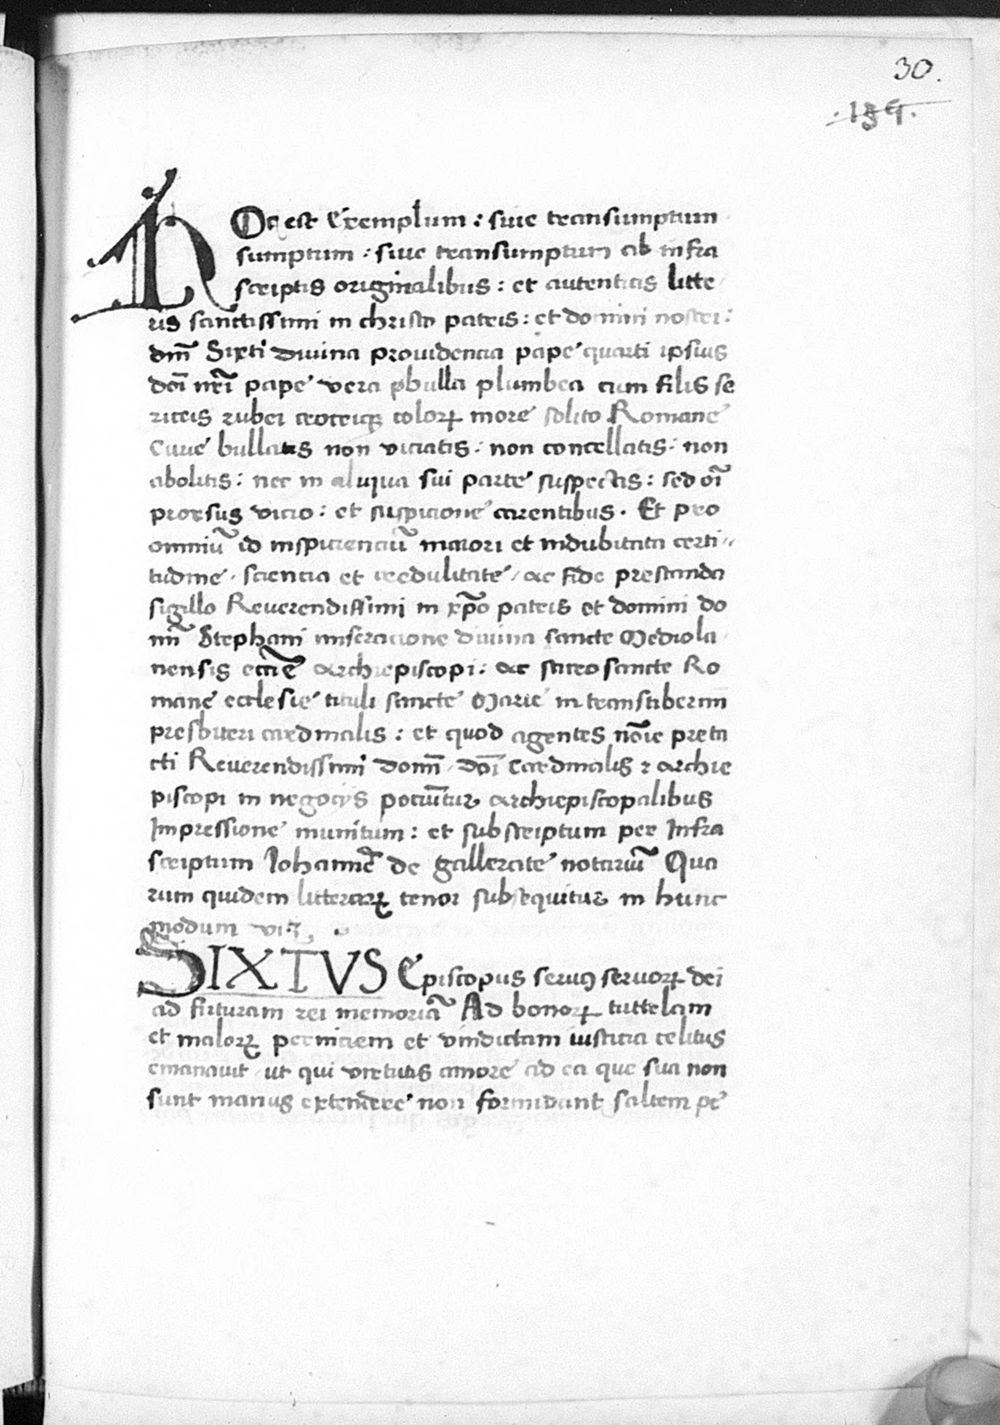 30.
.139.
HOc est Exemplum : siue transumptum
sumptum : siue transumptum ab infra
scriptis originalibus : et autenticis litte
ris sanctissimi in christo patris : et domini nostri :
dm̄ Sixti diuina prouidencia pape quarti ipsius
dōi nr̄i pape vera bulla plumbea cum filis se
riceis rubei croceiqȝ coloꝝ more solito Romane
Curie bullatis non viciatis : non concellatis : non
abolitis : nec in aliqua sui parte suspectis : sed oī
prorsus vicio : et suspicione carentibus . Et pro
omniū id inspicienciū maiori et indubitata certi
tudine . sciencia et credulitate / ac fide prestanda
sigillo Reuerendissimi in xp̄o patris et domini do
mī Stephani miseracione diuina sancte Mediola
nensis eccīe archiepiscopi : ac sacrosancte Ro
mane ecclesie tituli sancte Marie in transtiberim
presbiteri cardinalis : et quod agentes nōie preta
cti Reuerendissimi domī dōi Cardinalis ⁊ archie
piscopi in negocijs pociūtur archiepiscopalibus
Impressione munitum : et subscriptum per Infra
scriptum Iohannē de gallerate notariū Qua
rum quidem litteraꝝ tenor subsequitur in hunc
modum viȝ.
SIXTVS Episcopus seruꝯ seruoꝝ dei
ad futuram rei memoriā Ad bonoꝝ tuttelam
et maloꝝ perniciem et vindictam iusticia celitus
emanauit ut qui virtutis amore ad ea que sua non
sunt manus extendere non formidant saltem pe